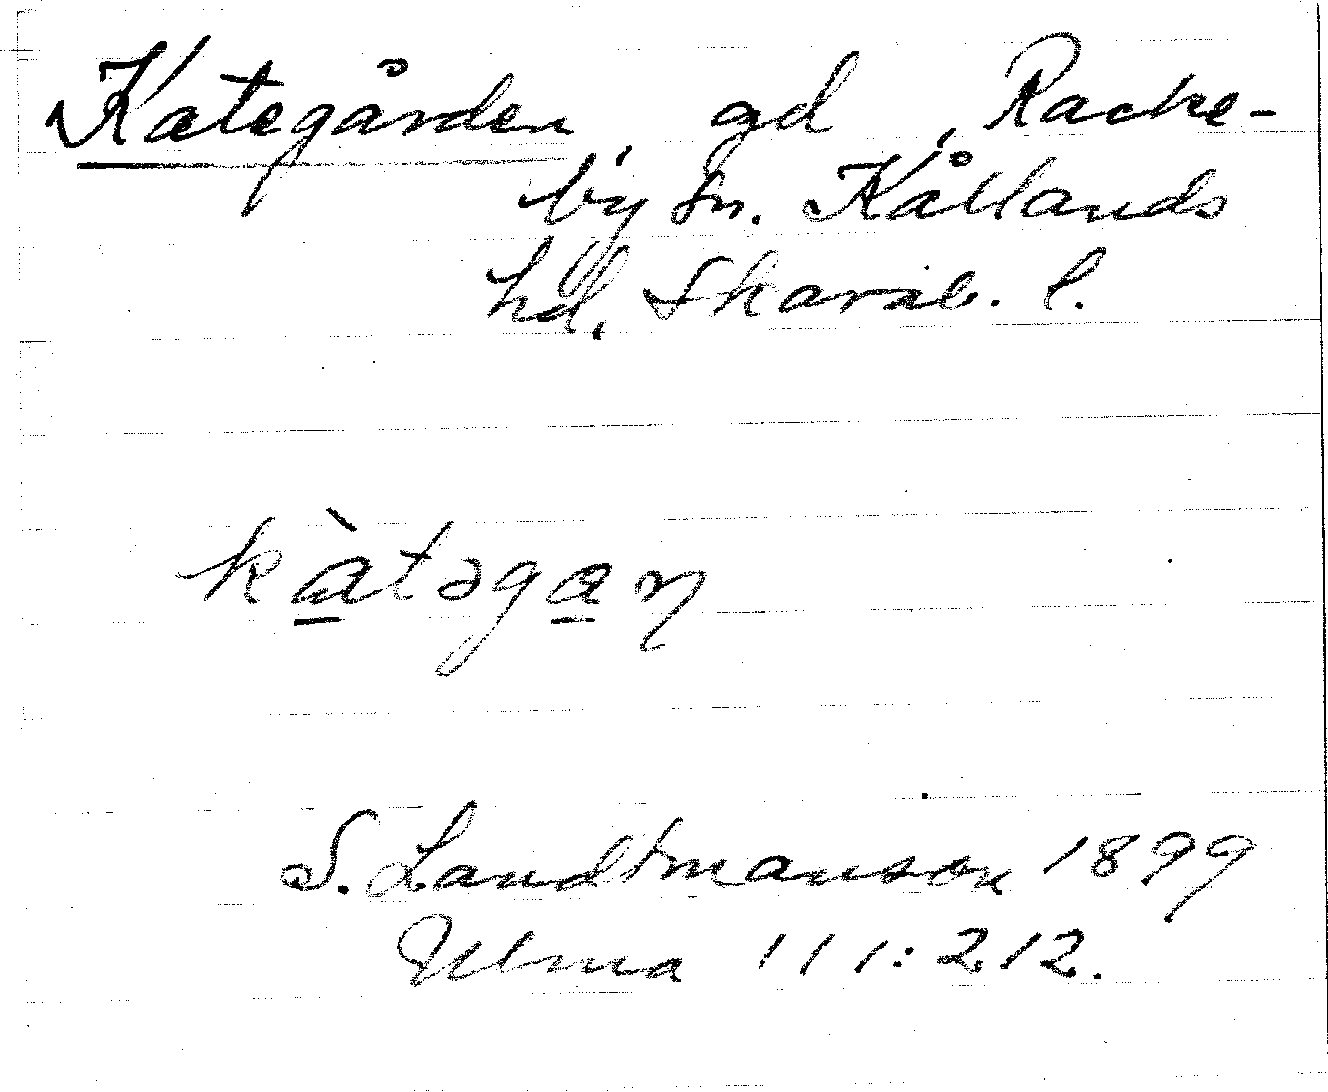 Kategården, gd, Racke-
by sn. Kållands
hd, Skarab. l.
kà̱təga̱ŋ
S. Landtmanson 1899
Ulma 111:212.